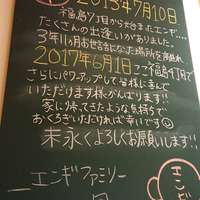 2013年7月10日
福島7丁目から始まったエンギ…
たくさんの出逢いがありました。
3年11ヵ月お世話になった場所を離れ
2017年6月1日ここ福島4丁目で
さらにパワーアップして皆様に喜んで
いただけます様がんばります!!
家に帰ってきたような気持ちで
おくつろぎいただければ幸いです
末永くよろしくお願いします!!
エンギファミリー
エンギ